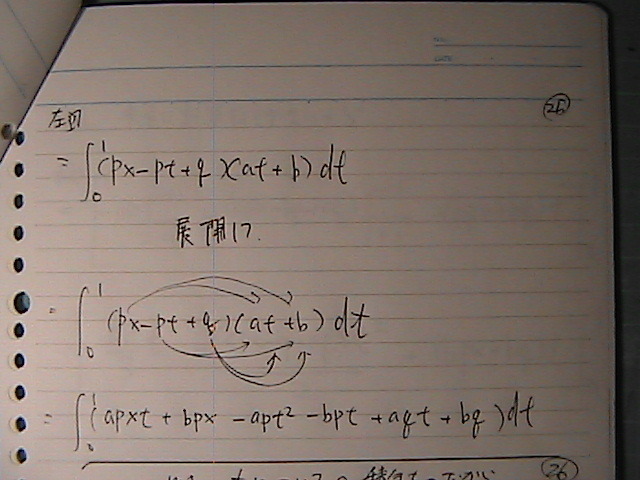 NO.
DATE
25
左辺
= ∫₀¹ (px - pt + q)(at + b) dt
展開は
= ∫₀¹ (px - pt + q)(at + b) dt
= ∫₀¹ (apxt + bpx - apt² - bpt + aqt + bq) dt
26